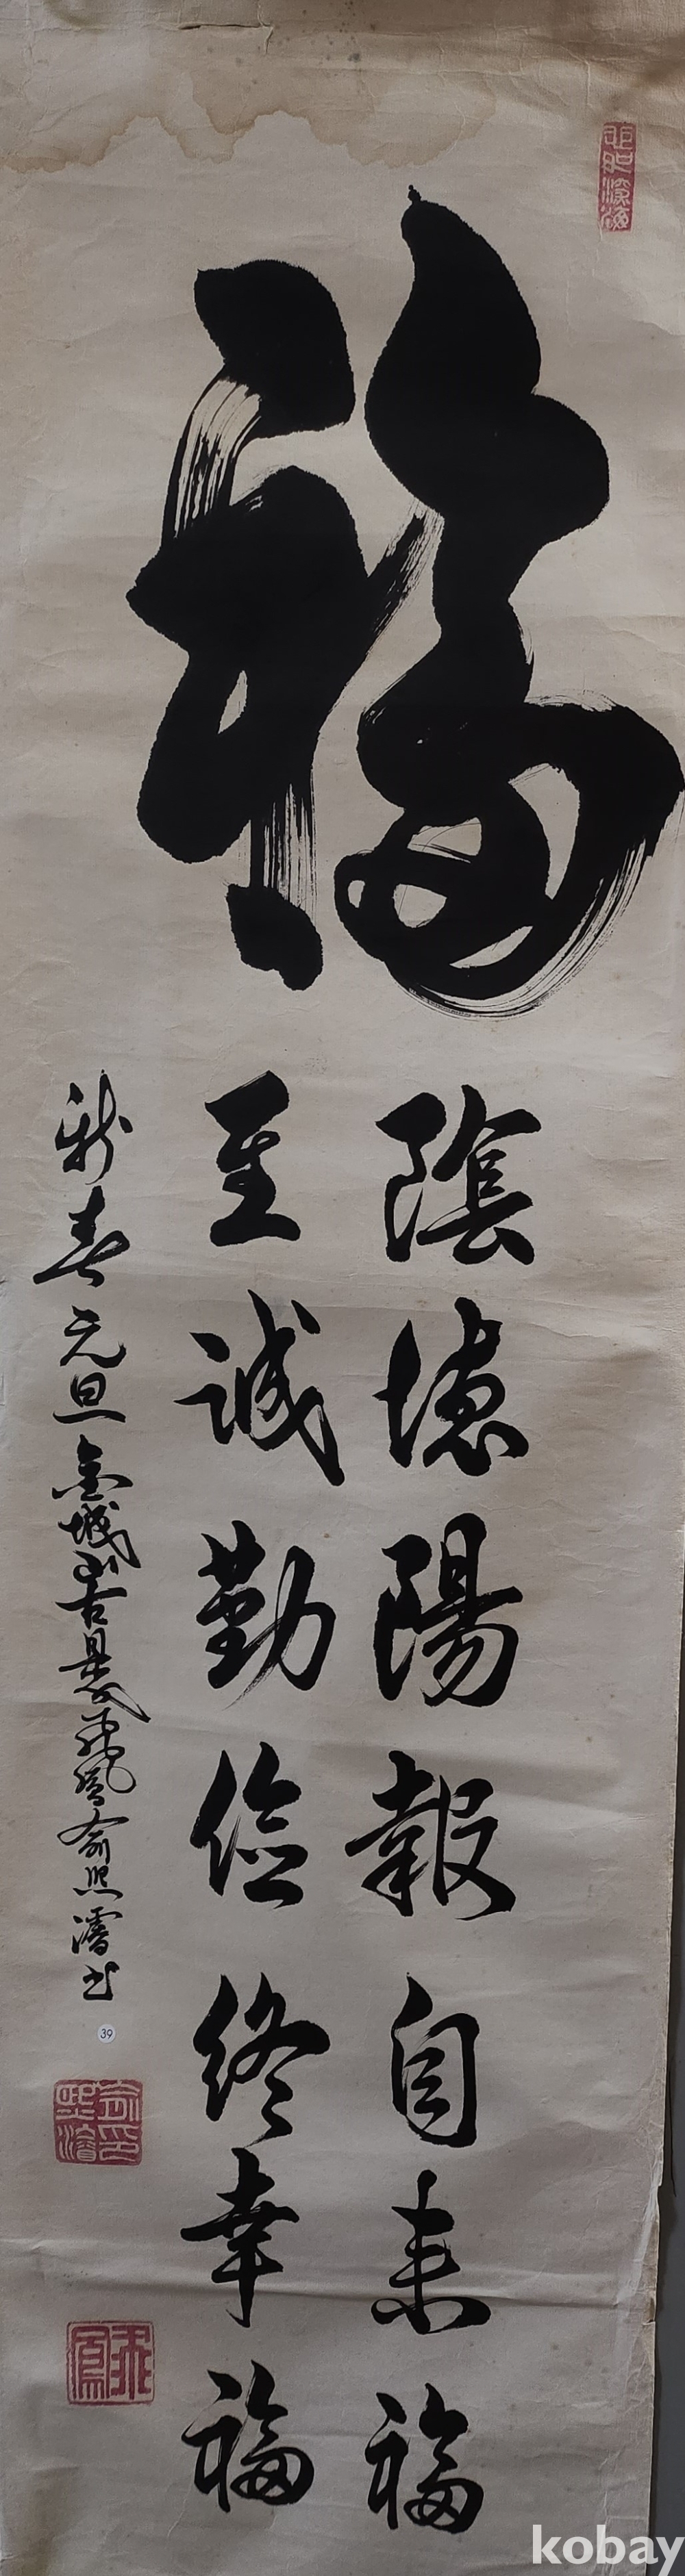 福
陰德陽報自来福
至誠勤儉終幸福
新春元旦金城
俞熙濬書
39
kobay